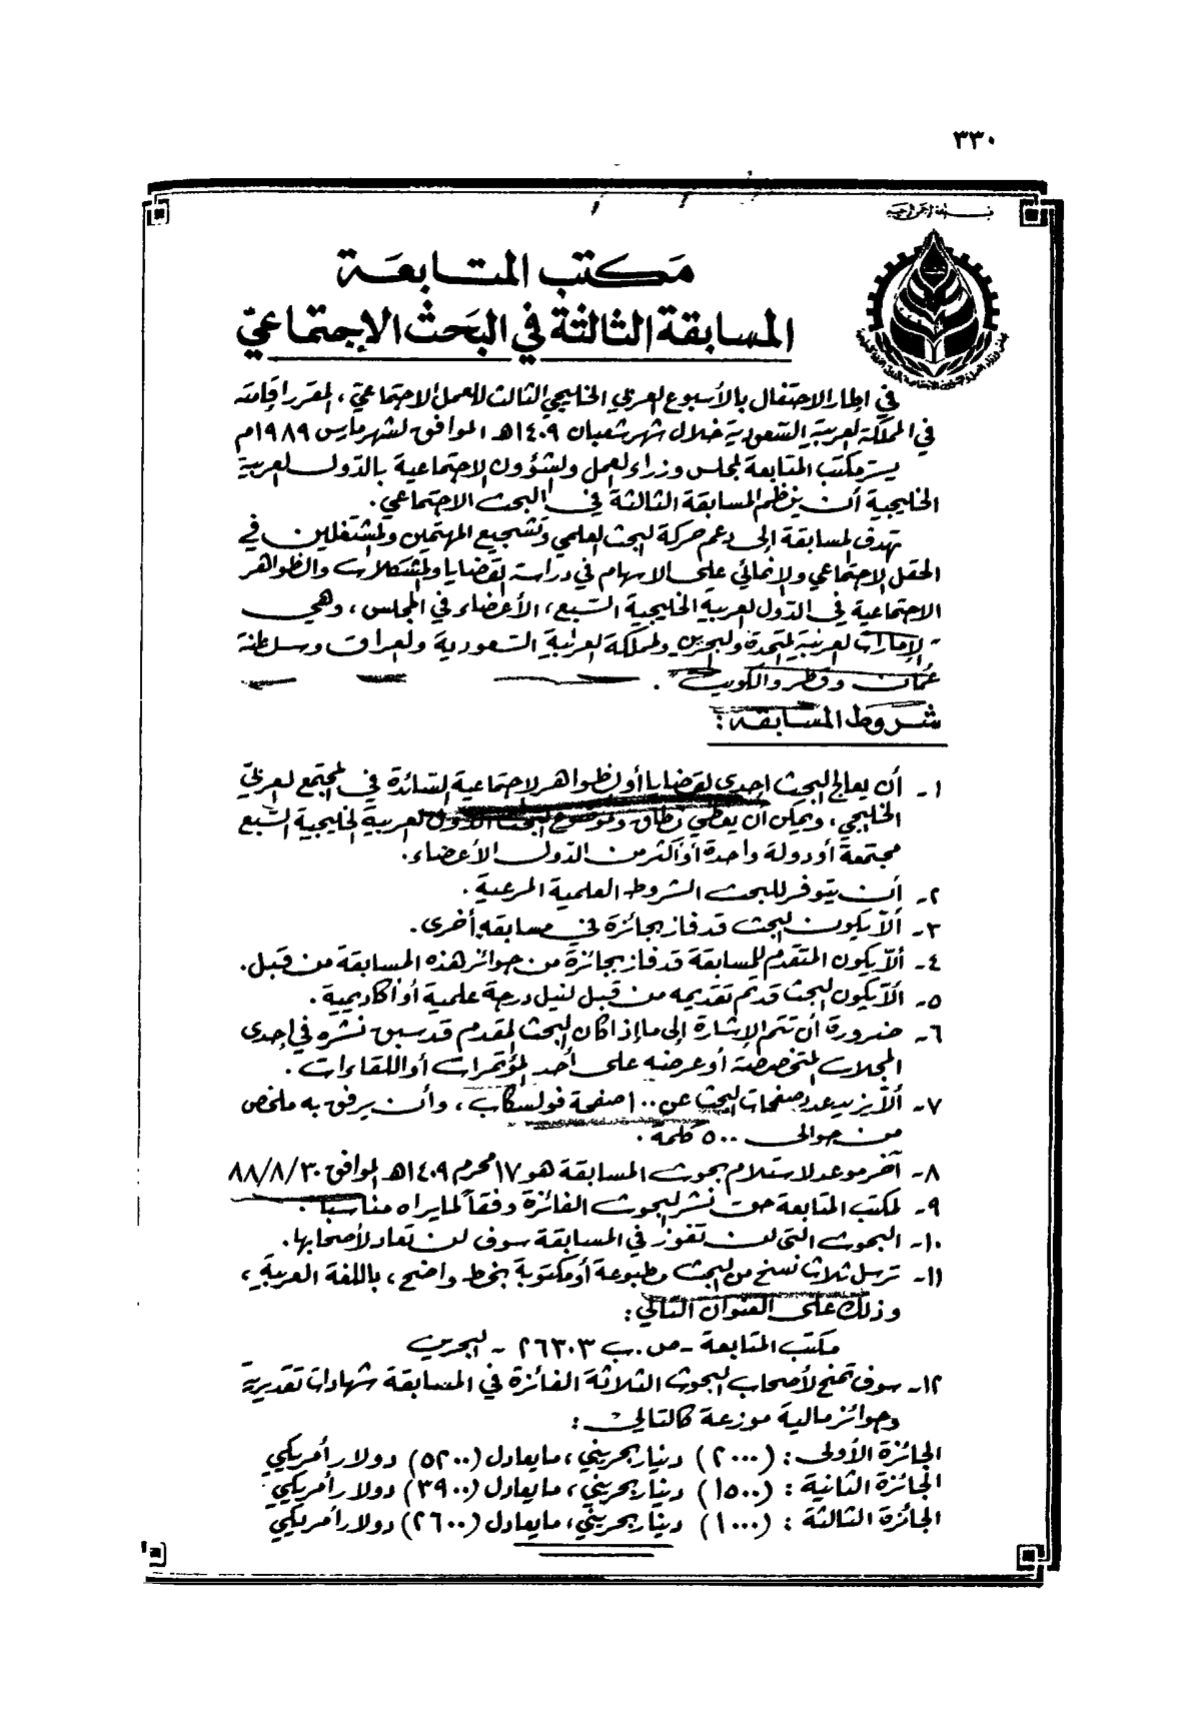 ٣٣٠
مكتب المتابعة
المسابقة الثالثة في البحث الإجتماعي
في إطار الاحتفال بالأسبوع العربي الخليجي الثالث للعمل الاجتماعي، المقرر إقامته
في المملكة العربية السعودية خلال شهر شعبان ١٤٠٩هـ الموافق لشهر مارس ١٩٨٩م
يسر مكتب المتابعة لمجلس وزراء العمل والشؤون الاجتماعية بالدول العربية
الخليجية أن ينظم المسابقة الثالثة في البحث الاجتماعي.
تهدف المسابقة إلى دعم حركة البحث العلمي وتشجيع المهتمين والمشتغلين في
الحقل الاجتماعي والإنمائي على الاسهام في دراسة القضايا والمشكلات والظواهر
الاجتماعية في الدول العربية الخليجية السبع، الأعضاء في المجلس، وهي
الإمارات العربية المتحدة والبحرين والمملكة العربية السعودية والعراق وسلطنة
عُمان وقطر والكويت.
شروط المسابقة:
١- أن يعالج البحث إحدى القضايا أو الظواهر الاجتماعية السائدة في المجتمع العربي
الخليجي، ويمكن أن يغطي نطاق وموضوع البحث الدول العربية الخليجية السبع
مجتمعة أو دولة واحدة أو أكثر من الدول الأعضاء.
٢- أن يتوفر للبحث الشروط العلمية المرعية.
٣- ألاّ يكون البحث قد فاز بجائزة في مسابقة أخرى.
٤- ألاّ يكون المتقدم للمسابقة قد فاز بجائزة من جوائز هذه المسابقة من قبل.
٥- ألاّ يكون البحث قد تم تقديمه من قبل لنيل درجة علمية أو أكاديمية.
٦- ضرورة أن تتم الإشارة إلى ما إذا كان البحث المقدم قد سبق نشره في إحدى
المجلات المتخصصة أو عرضه على أحد المؤتمرات أو اللقاءات.
٧- ألاّ يزيد عدد صفحات البحث عن ١٠٠ صفحة فولسكاب، وأن يرفق به ملخص
من حوالى ٥٠٠ كلمة.
٨- آخر موعد لاستلام بحوث المسابقة هو ١٧ محرم ١٤٠٩هـ الموافق ٨٨/٨/٣٠
٩- لمكتب المتابعة حق نشر البحوث الفائزة وفقاً لما يراه مناسباً.
١٠- البحوث التي لن تفوز في المسابقة سوف لن تعاد لأصحابها.
١١- ترسل ثلاث نسخ من البحث مطبوعة أو مكتوبة بخط واضح، باللغة العربية،
وذلك على العنوان التالي:
مكتب المتابعة - ص.ب ٢٦٣٠٣ - البحرين
١٢- سوف تمنح لأصحاب البحوث الثلاثة الفائزة في المسابقة شهادات تقديرية
وجوائز مالية موزعة كالتالي:
الجائزة الأولى: (٢٠٠٠) دينار بحريني، ما يعادل (٥٢٠٠) دولار أمريكي
الجائزة الثانية: (١٥٠٠) دينار بحريني، ما يعادل (٣٩٠٠) دولار أمريكي
الجائزة الثالثة: (١٠٠٠) دينار بحريني، ما يعادل (٢٦٠٠) دولار أمريكي